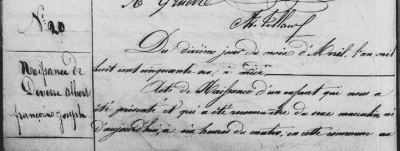 N° 20
Naissance de
Deverre Albert
françois Joseph
Du dixième jour du mois d'Avril l'an mil
huit cent cinquante un, à midi
Acte de Naissance d'un enfant qui nous a
été présenté et qui a été reconnu être du sexe masculin né
d'aujourd'hui, à six heures du matin, en cette commune au